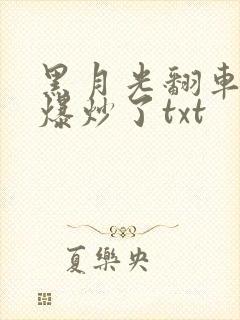 黑月光翻車
爆炒了txt
夏樂央